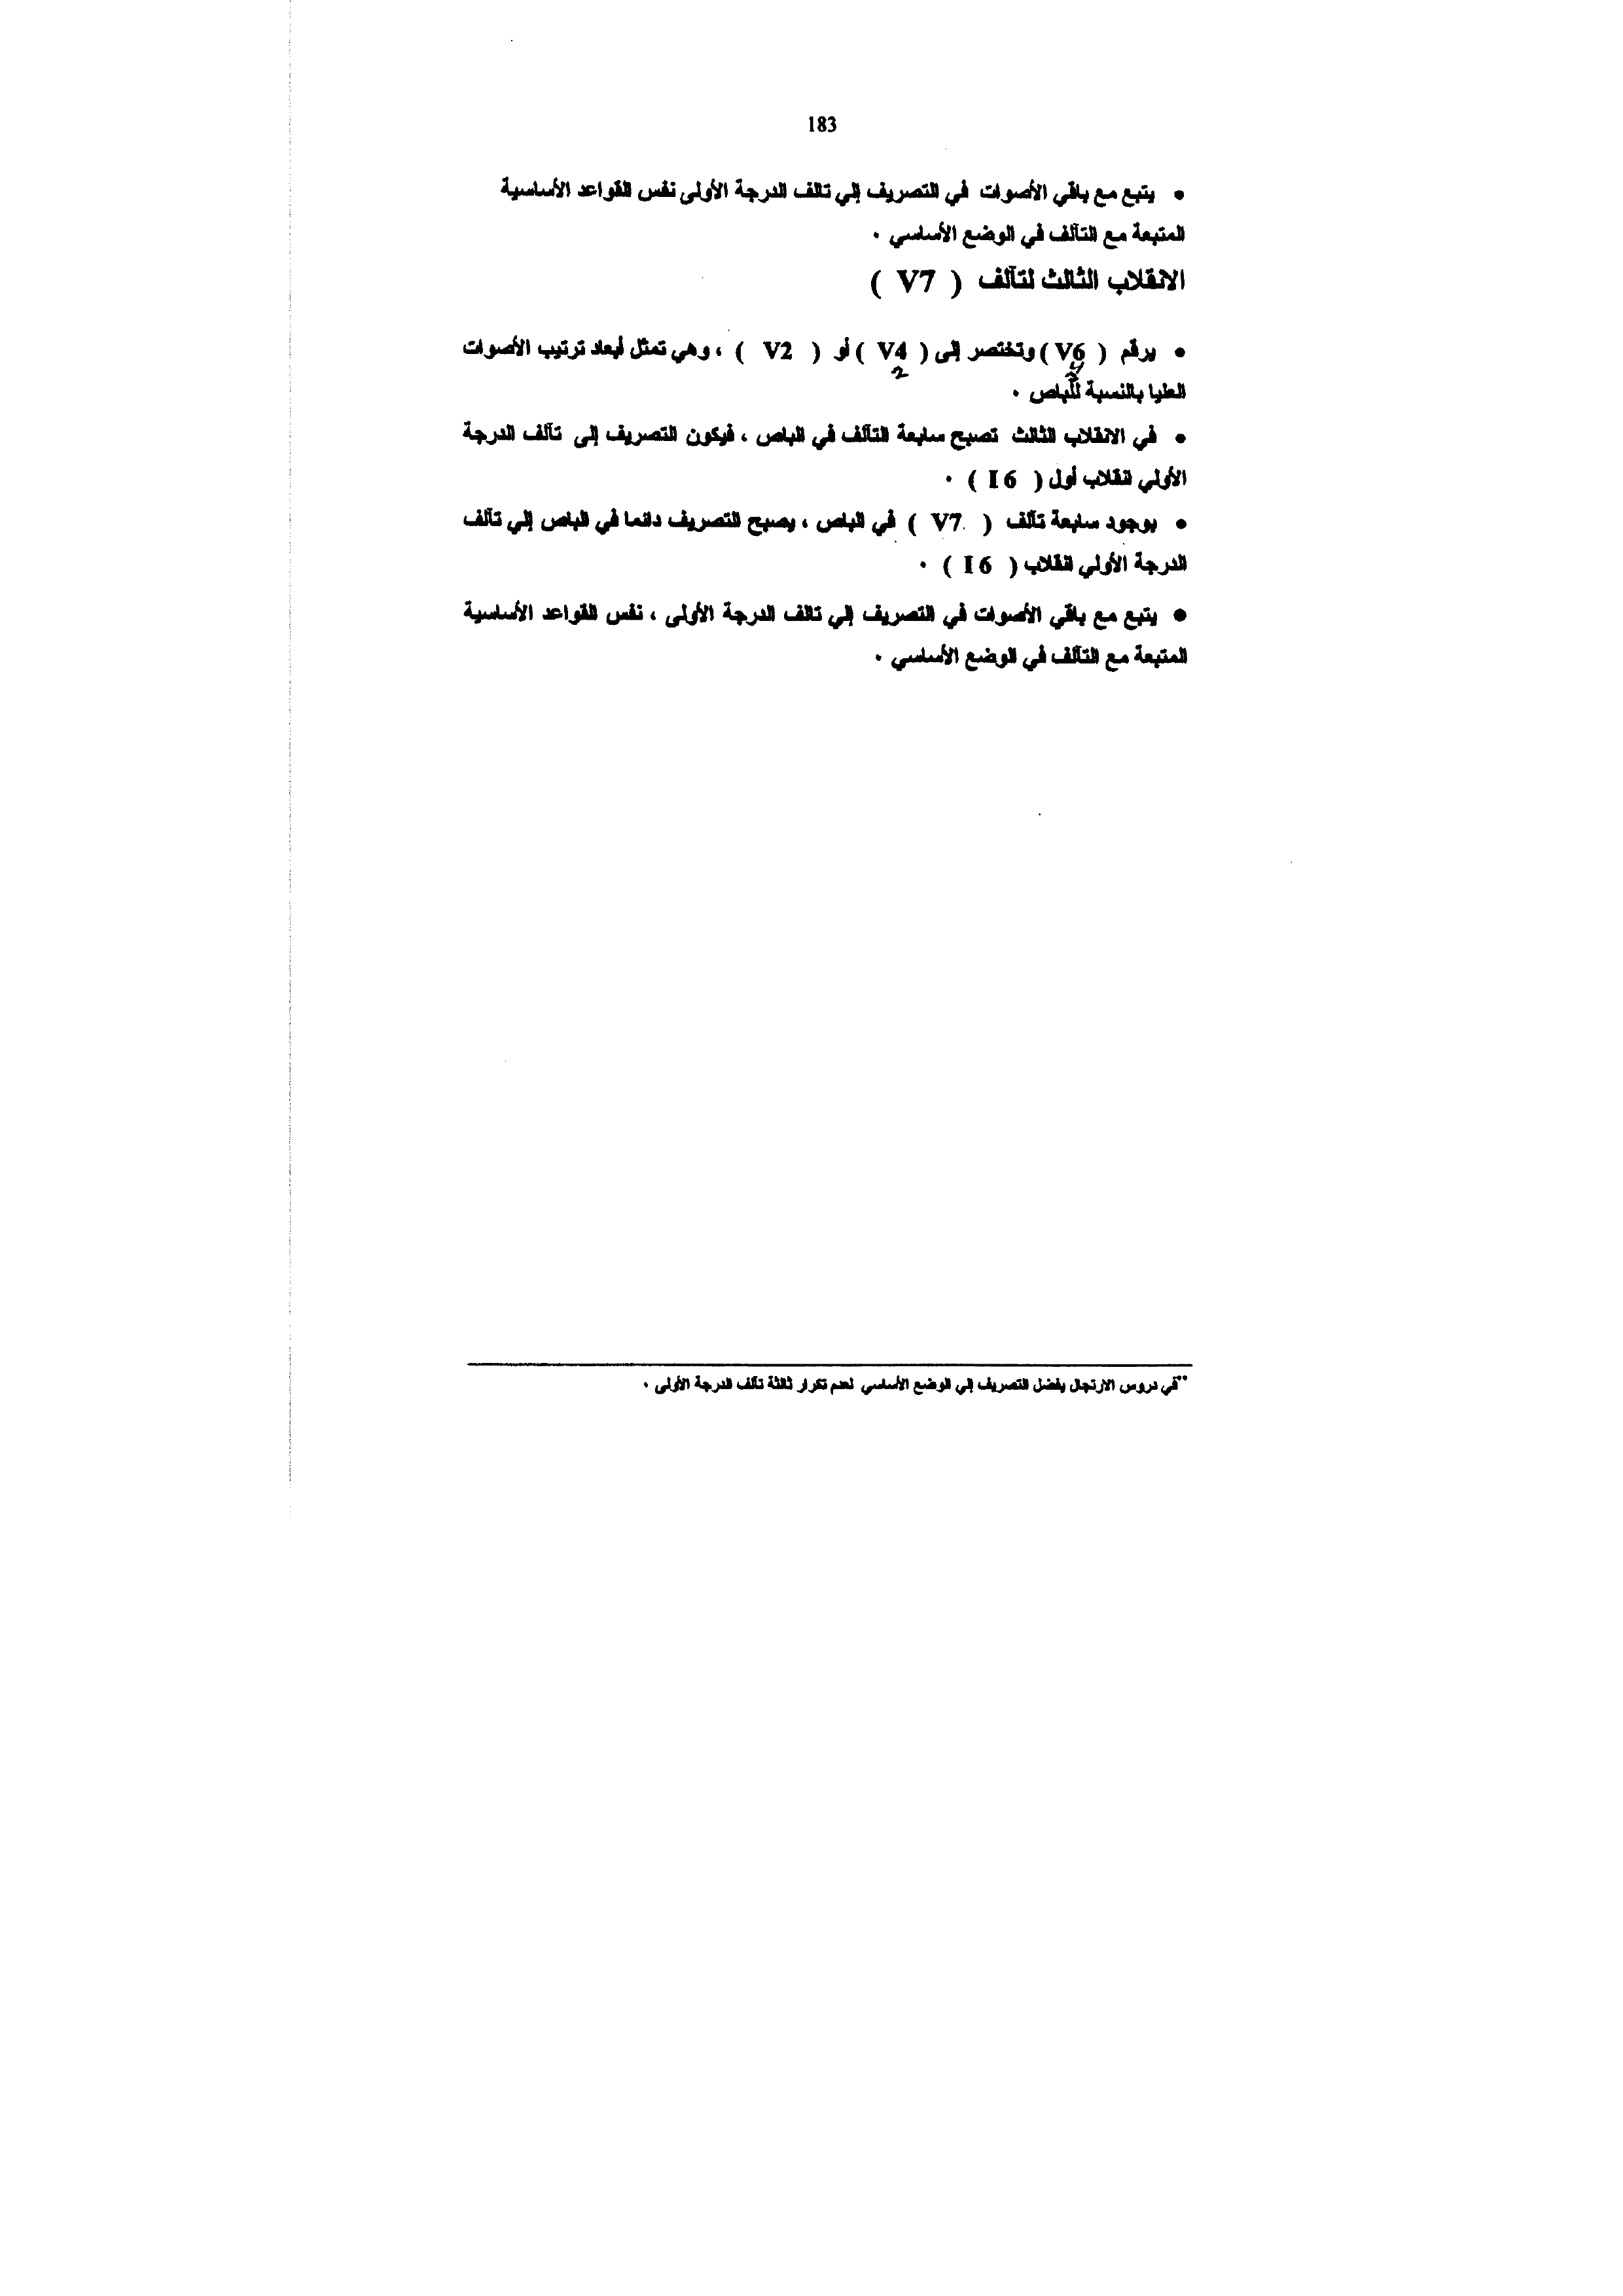 183
• يتبع مع باقي الأصوات في التصريف إلي تالف الدرجة الأولى نفس القواعد الأساسية
المتبعة مع التآلف في الوضع الأساسي ٠
الانقلاب الثالث لتآلف ( V7 )
• يرقم ( V6 ) وتختصر إلى ( V4 ) أو ( V2 ) ، وهي تمثل أبعاد ترتيب الأصوات
4
2
2
العليا بالنسبة للباص ٠
• في الانقلاب الثالث تصبح سابعة التآلف في الباص ، فيكون التصريف إلى تآلف الدرجة
الأولي انقلاب أول ( I 6 ) ٠
• بوجود سابعة تآلف ( V7 ) في الباص ، يصبح التصريف دائما في الباص إلي تآلف
الدرجة الأولي انقلاب ( I 6 ) ٠
• يتبع مع باقي الأصوات في التصريف إلي تالف الدرجة الأولى ، نفس القواعد الأساسية
المتبعة مع التآلف في الوضع الأساسي ٠
**في دروس الارتجال يفضل التصريف إلي الوضع الأساسي لعدم تكرار ثالثة تآلف الدرجة الأولى ٠